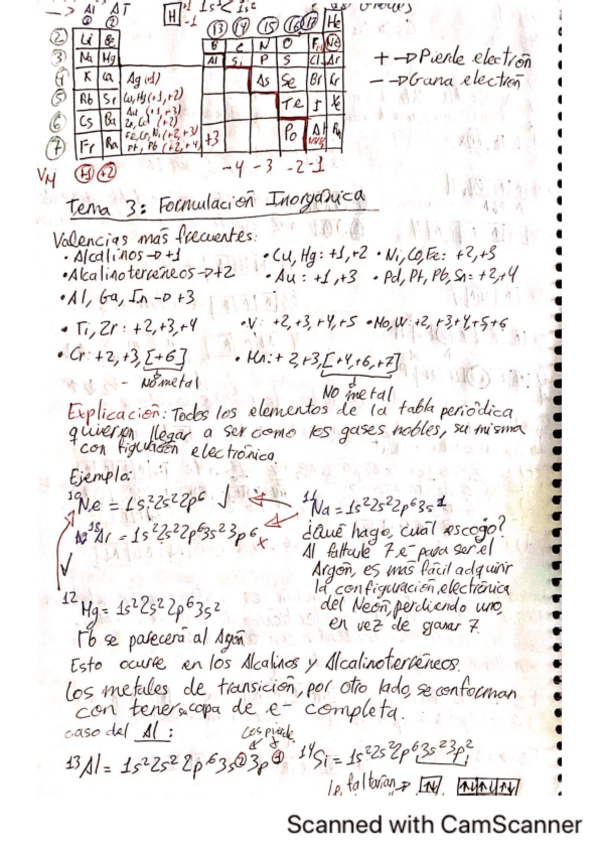 → Al AT
① ②
H +1 1s² -1
⑬ ⑭ ⑮ ⑯ ⑰ He
② Li Be B C N O F Ne
③ Na Mg Al Si P S Cl Ar
④ K Ca Ag(+1) As Se Br Kr
⑤ Rb Sr Cu, Hg(+1,+2) Te I Xe
Au (+1,+3)
⑥ Cs Ba
Fe, Co, Ni(+2,+3) +3 Po At Rn
⑦ Fr Ra Pt, Pb (+2,+4)
VM +1 +2 -4 -3 -2 -1
+ → Pierde electrón
- → Gana electrón
Tema 3: Formulación Inorgánica
Valencias más frecuentes:
• Alcalinos → +1 • Cu, Hg: +1,+2 • Ni, Co, Fe: +2,+3
• Alcalinoterreneos → +2 • Au: +1,+3 • Pd, Pt, Pb, Sn: +2,+4
• Al, Ga, In → +3
• Ti, Zr: +2,+3,+4 • V: +2,+3,+4,+5 • Mo, W: +2,+3+4,+5+6
• Cr: +2,+3,[+6] • Mn: +2,+3,[+4,+6,+7]
No metal
No metal
Explicación: Todos los elementos de la tabla periódica
quieren llegar a ser como los gases nobles, su misma
configuración electrónica
Ejemplo:
¹⁰Ne = 1s²2s²2p⁶ √
¹¹Na = 1s²2s²2p⁶3s¹
¹⁸Ar = 1s²2s²2p⁶3s²3p⁶ x
¿Qué hago, cuál escojo?
Al faltarle 7 e⁻ para ser el
Argón, es más fácil adquirir
la configuración electrónica
del Neón, perdiendo uno,
en vez de ganar 7.
√
¹²Mg = 1s²2s²2p⁶3s²
No se parecerá al Agón
Esto ocurre en los Alcalinos y Alcalinoterreneos.
Los metales de transición, por otro lado, se conforman
con tener capa de e- completa.
caso del Al: Los pierde
¹³Al = 1s²2s²2p⁶3s²3p¹ ¹⁴Si = 1s²2s²2p⁶3s²3p²
le faltarían → ↑↓ ↑↓↑↓↑↓
Scanned with CamScanner